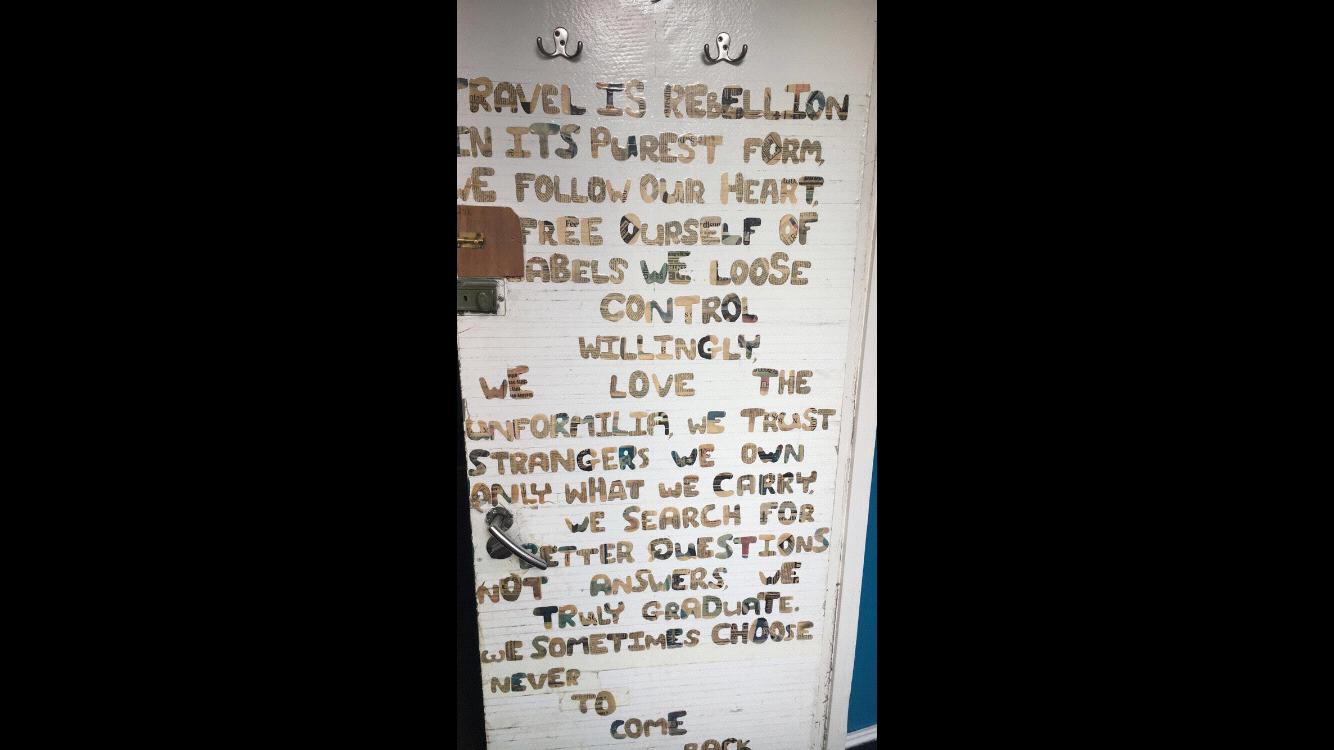 TRAVEL IS REBELLION
IN ITS PUREST FORM,
WE FOLLOW OUR HEART,
FREE OURSELF OF
LABELS WE LOOSE
CONTROL
WILLINGLY,
WE LOVE THE
UNFORMILIA, WE TRUST
STRANGERS WE OWN
ONLY WHAT WE CARRY,
WE SEARCH FOR
BETTER QUESTIONS
NOT ANSWERS, WE
TRULY GRADUATE.
WE SOMETIMES CHOOSE
NEVER
TO
COME
BACK